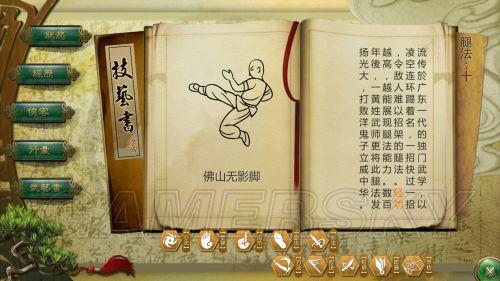 狀態
經歷
俠客
行囊
武藝書
技藝書
佛山无影脚
腿法：十
流传於广东一代的独门武学，以
凌空连环踢着名，一招快过一招
，令敌人难以招架的腿法。经功
越高，越能展现腿法能力。数百
年後，一黄姓武师更将此腿法发
扬光大，打败洋鬼子立威中华。
GAMERSKY